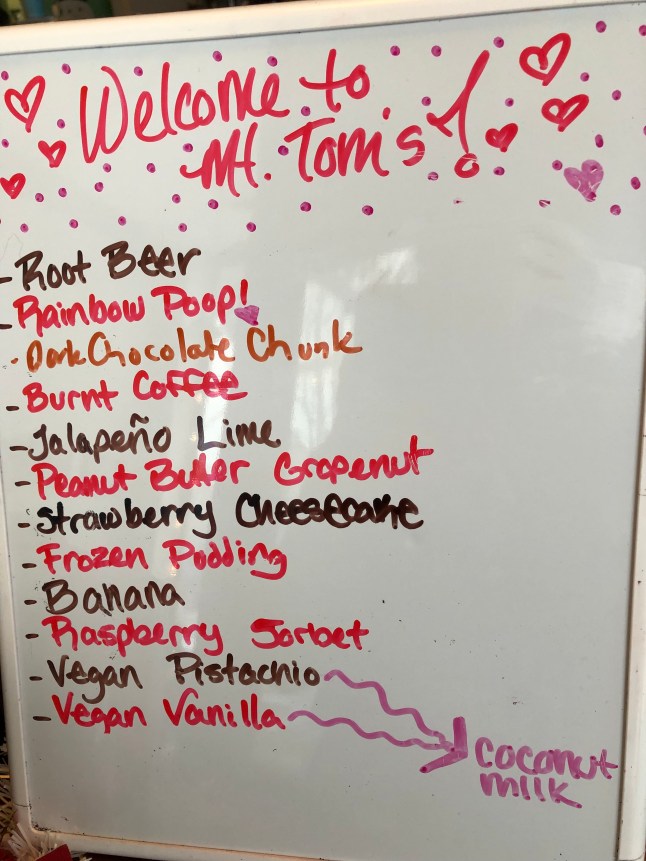 Welcome to
Mt. Tom's!
- Root Beer
- Rainbow Poop!
- Dark Chocolate Chunk
- Burnt Coffee
- Jalapeño Lime
- Peanut Butter Grapenut
- Strawberry Cheesecake
- Frozen Pudding
- Banana
- Raspberry Sorbet
- Vegan Pistachio
- Vegan Vanilla
coconut
milk